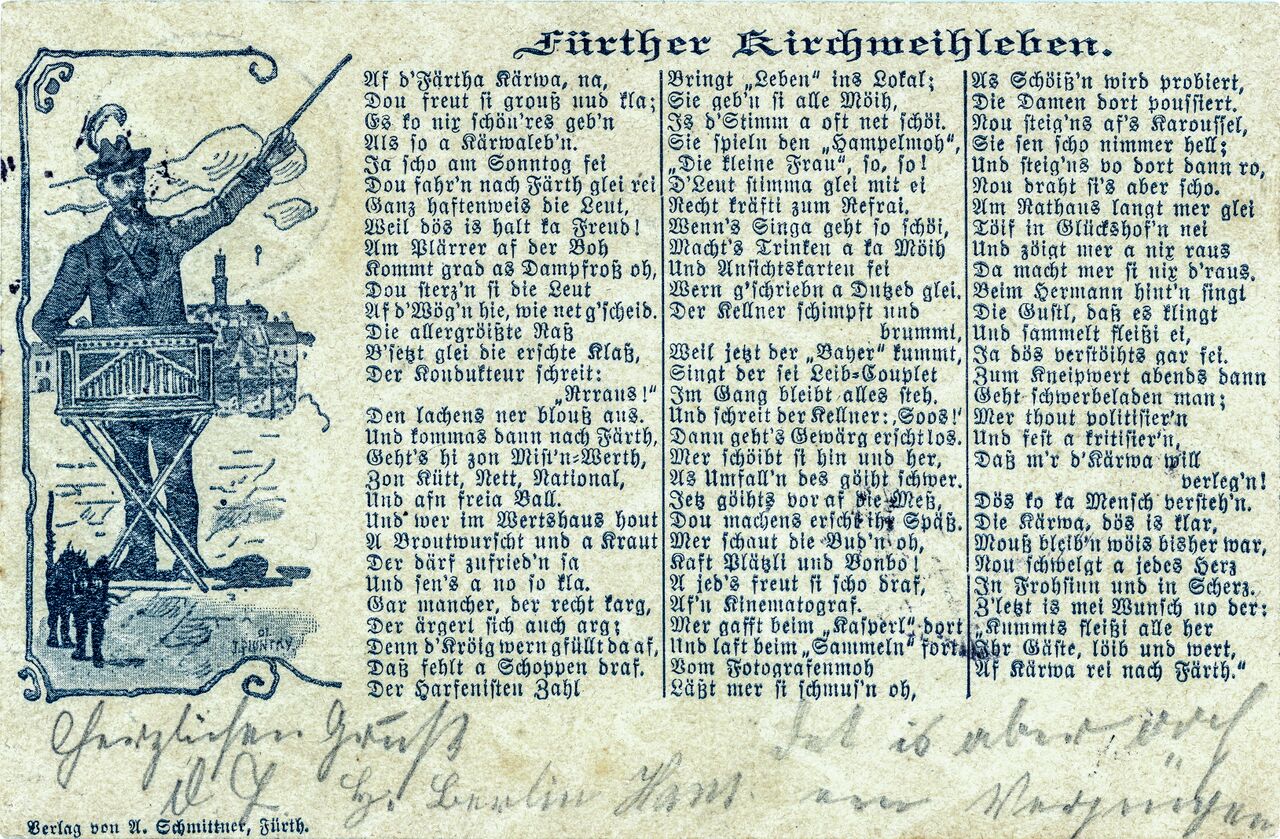 Fürther Kirchweihleben.
Af d'Färtha Kärwa, na,
Dou freut si grouß und kla;
Es ko nix schöu'res geb'n
Als so a Kärwaleb'n.
Ja scho am Sonntog fei
Dou fahr'n nach Färth glei rei
Ganz haftenweis die Leut,
Weil dös is halt ka Freud!
Am Plärrer af der Boh
Kommt grad as Dampfroß oh,
Dou sterz'n si die Leut
Af d'Wög'n hie, wie net g'scheid.
Die allergröißte Raß
B'setzt glei die erschte Klaß,
Der Kondukteur schreit:
„Rrraus!"
Den lachens ner blouß aus.
Und kommas dann nach Färth,
Geht's hi zon Mist'n=Werth,
Zon Kütt, Nett, National,
Und afn freia Ball.
Und wer im Wertshaus hout
A Broutwurscht und a Kraut
Der därf zufried'n sa
Und sen's a no so kla.
Gar mancher, der recht karg,
Der ärgerl sich auch arg;
Denn d'Kröig wern gfüllt da af,
Daß fehlt a Schoppen draf.
Der Harfenisten Zahl
Bringt „Leben" ins Lokal;
Sie geb'n si alle Möih,
Is d'Stimm a oft net schöi.
Sie spieln den „Hampelmoh",
„Die kleine Frau", so, so!
D'Leut stimma glei mit ei
Recht kräfti zum Refrai.
Wenn's Singa geht so schöi,
Macht's Trinken a ka Möih
Und Ansichtskarten fei
Wern g'schriebn a Dutzed glei.
Der Kellner schimpft und
brummt,
Weil jetzt der „Bayer" kummt,
Singt der sei Leib=Couplet
Im Gang bleibt alles steh.
Und schreit der Kellner: „Soos!'
Dann geht's Gewärg erscht los.
Mer schöibt si hin und her,
As Umfall'n des göiht schwer.
Jetz göihts vor af die Meß,
Dou machens erscht ihr Späß.
Mer schaut die Bud'n oh,
Kaft Plätzli und Bonbo!
A jed's freut si scho draf,
Af'n Kinematograf.
Mer gafft beim „Kasperl" dort
Und laft beim „Sammeln" fort
Vom Fotografenmoh
Läßt mer si schmus'n oh,
As Schöiß'n wird probiert,
Die Damen dort poussiert.
Nou steig'ns af's Karoussel,
Sie sen scho nimmer hell;
Und steig'ns vo dort dann ro,
Nou draht si's aber scho.
Am Rathaus langt mer glei
Töif in Glückshof'n nei
Und zöigt mer a nix raus
Da macht mer si nix d'raus.
Beim Hermann hint'n singt
Die Gustl, daß es klingt
Und sammelt fleißi ei,
Ja dös verstöihts gar fei.
Zum Kneipwert abends dann
Geht schwerbeladen man;
Mer thout politisier'n
Und fest a kritisier'n,
Daß m'r d'Kärwa will
verleg'n!
Dös ko ka Mensch versteh'n.
Die Kärwa, dös is klar,
Mouß bleib'n wöis bisher war,
Nou schwelgt a jedes Herz
In Frohsinn und in Scherz.
Z'letzt is mei Wunsch no der:
„Kummts fleißi alle her
Ihr Gäste, löib und wert,
Af Kärwa rei nach Färth."
Herzlichen Gruß
Berlin Hans.
det is aber och
een Vergnügen
Verlag von A. Schmittner, Fürth.